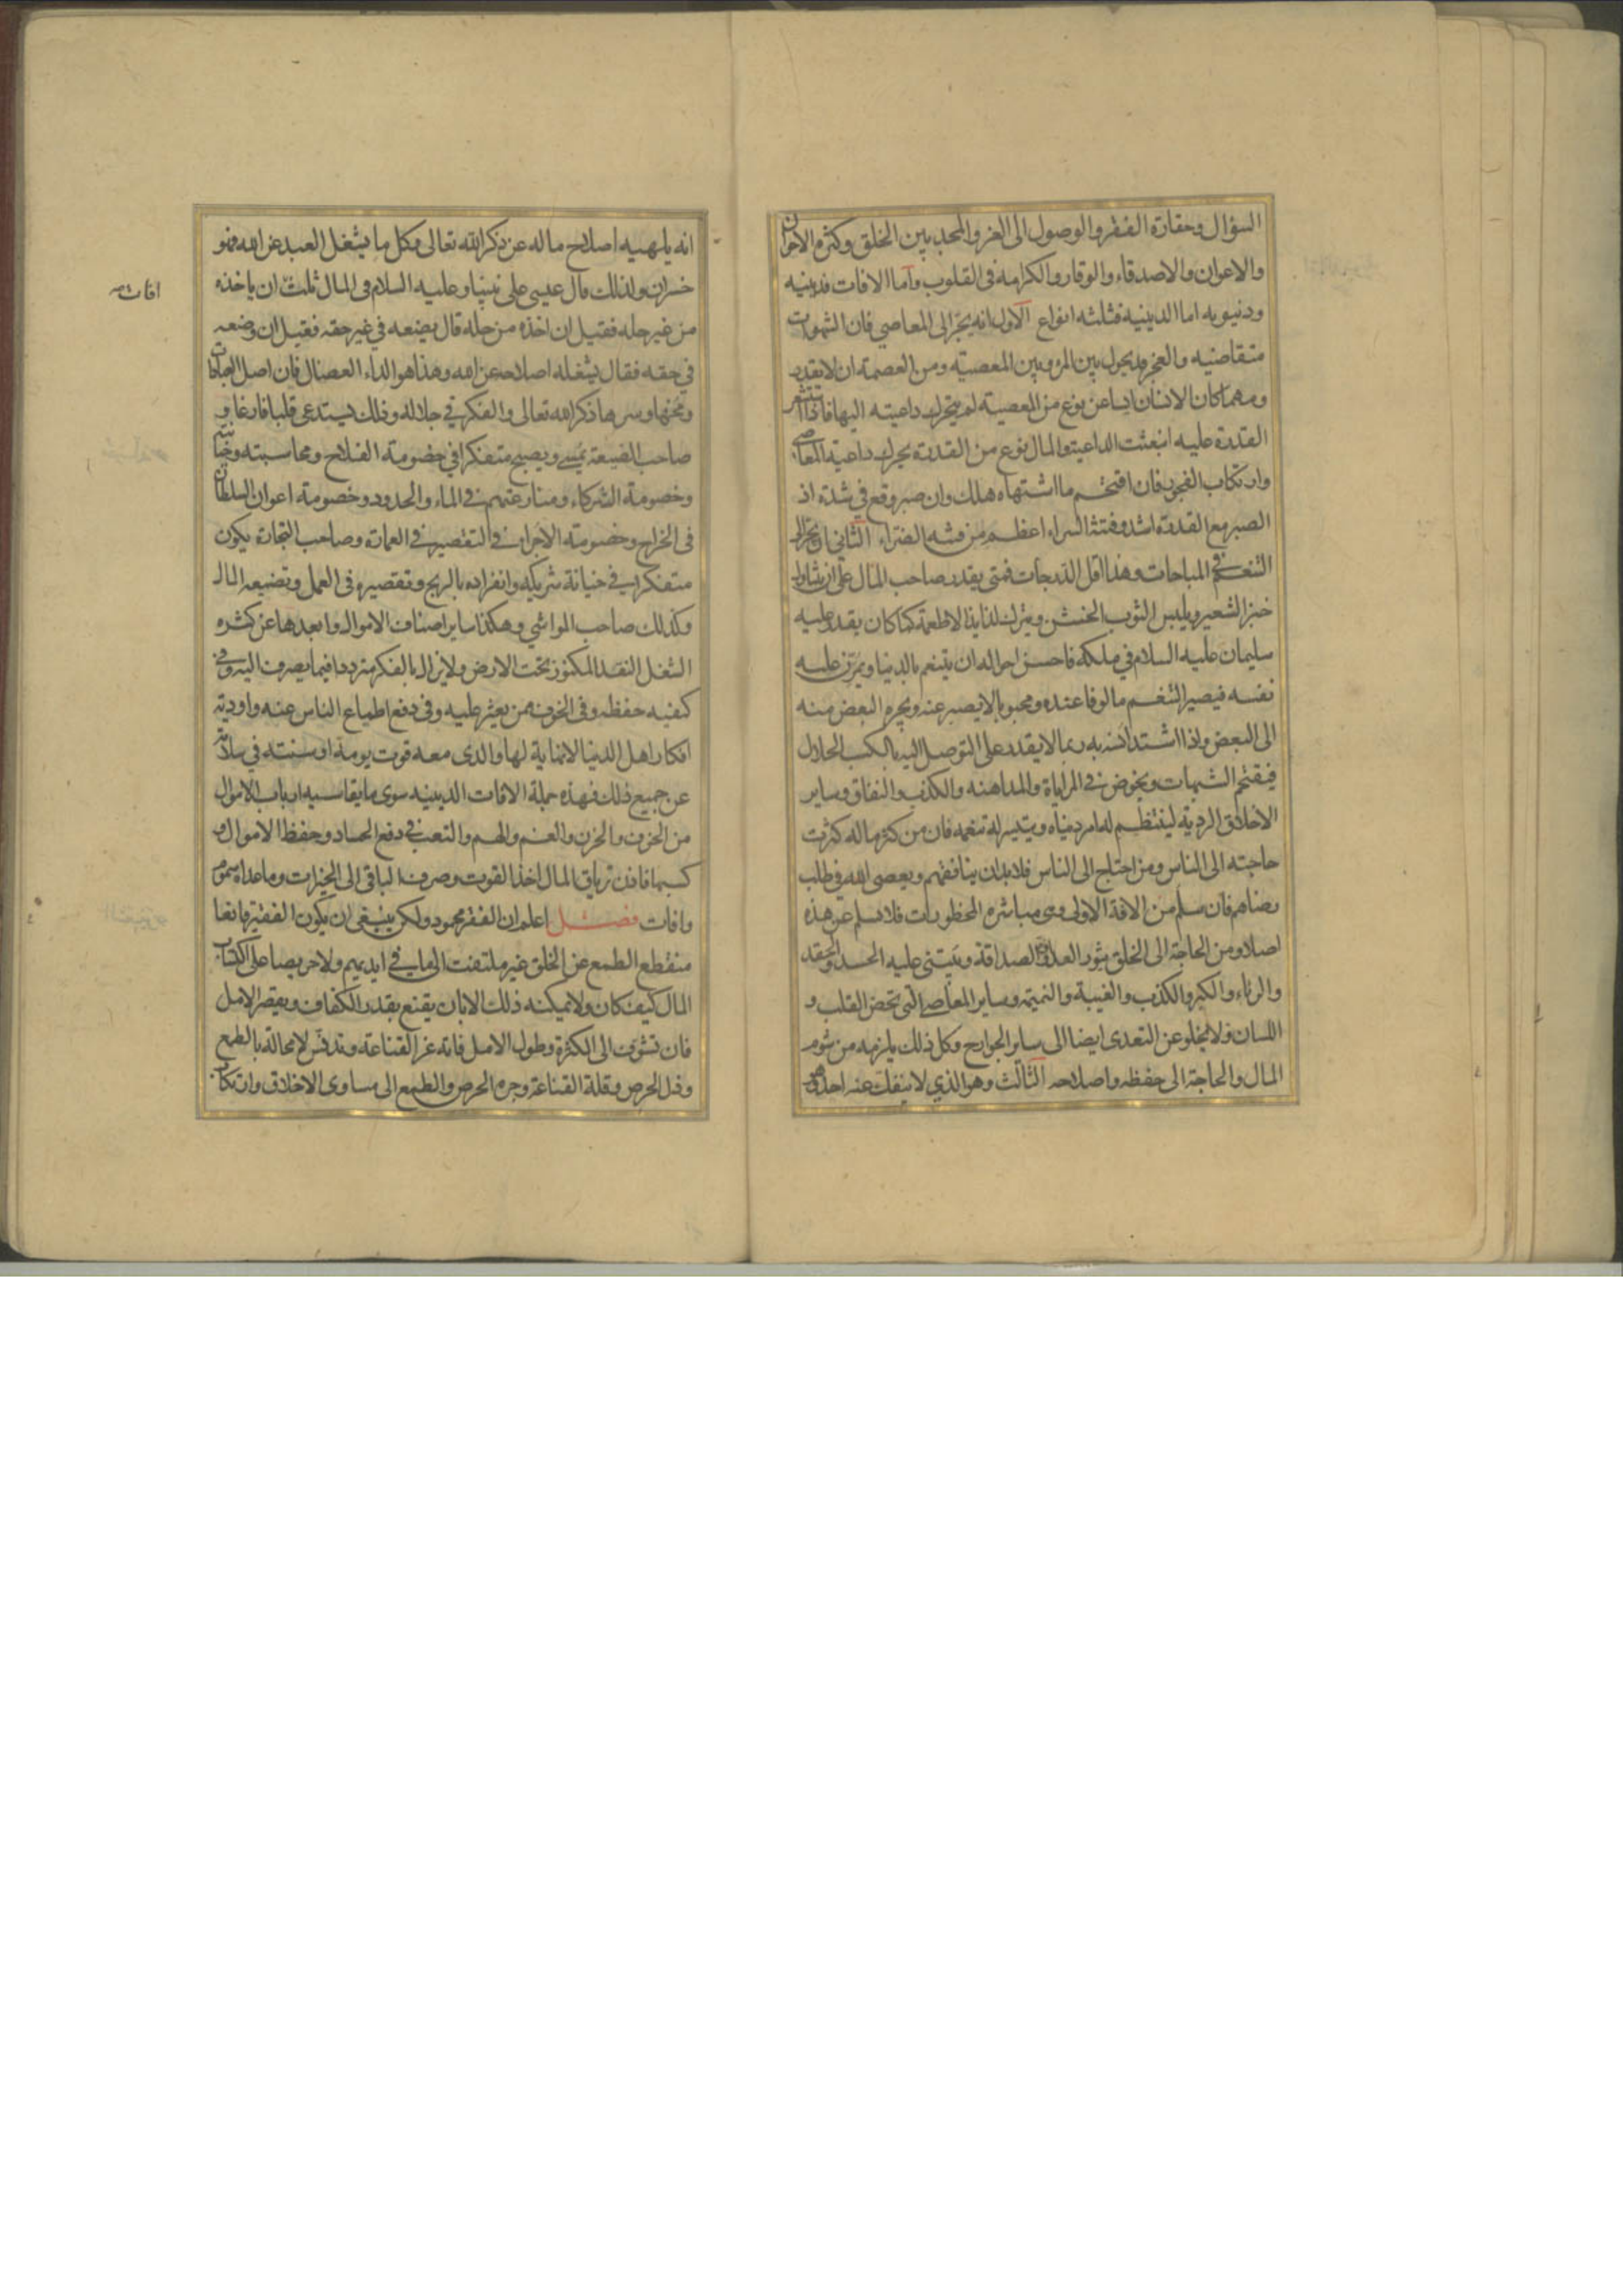 السؤال وحقارة الفقر والوصول الى العز والمجد بين الخلق وكثرة الاخوان
والاعوان والاصدقاء والوقار والكرامة فى القلوب واما الافات فدينيه
ودنيويه اما الدينية فثلثه انواع الاول انه يجر الى المعاصي فان الشهوات
متقاضيه والعجز قد يحول بين المرء وبين المعصية ومن العصمة ان لا يقدر
ومهما كان الانسان ايسا عن نوع من المعصية لم يتحرك داعيته اليها فاذا استشعر
القدرة عليه انبعثت الداعية والمال نوع من القدرة يحرك داعية المعاصى
وارتكاب الفجور فان اقتحم ما اشتهاه هلك وان صبر وقع في شدة اذ
الصبر مع القدرة اشد وفتنة السراء اعظم من فتنه الضراء الثاني انه يجر الى
التنعم في المباحات وهذا اقل الدرجات فمتى يقدر صاحب المال على ان يتناول
خبز الشعير ويلبس الثوب الخشن ويترك لذايذ الاطعمة كما كان يقدر عليه
سليمان عليه السلام في ملكه فاحسن احواله ان يتنعم بالدنيا ويمرن عليه
نفسه فيصير التنعم مالوفا عنده ومحبوبا لا يصبر عنه ويجره البعض منه
الى البعض واذا اشتد انسه به ربما لا يقدر على التوصل اليه بالكسب الحلال
فيقتحم الشبهات ويخوض في المراياة والمداهنه والكذب والنفاق وساير
الاخلاق الردية لينتظم له امر دنياه ويتيسر له تنعمه فان من كثر ماله كثرت
حاجته الى الناس ومن احتاج الى الناس فلا بد ان ينافقهم ويعصى الله فى طلب
رضاهم فان سلم من الافة الاولى وهى مباشره المحظورات فلا يسلم عن هذه
اصلا ومن الحاجة الى الخلق يثور العداوة والصداقة ويبتنى عليه الحسد والحقد
والرياء والكبر والكذب والغيبة والنميمة وساير المعاصى التى تخص القلب و
اللسان ولا يخلو عن التعدى ايضا الى ساير الجوارح وكل ذلك يلزمه من شوم
المال والحاجة الى حفظه واصلاحه الثالث وهو الذي لا ينفك عنه احد وهو
انه يلهيه اصلاح ماله عن ذكر الله تعالى وكل ما يشغل العبد عن الله فهو
خسران ولذلك قال عيسى على نبينا وعليه السلام فى المال ثلث ان ياخذه
من غير حله فقيل ان اخذه من حله قال يضعه في غير حقه فقيل ان وضعه
في حقه فقال يشغله اصلاحه عن الله وهذا هو الداء العضال فان اصل العبادات
ومخها وسرها ذكر الله تعالى والفكر في جلاله وذلك يستدعى قلبا فارغا و
صاحب الضيعة يمسى ويصبح متفكرا في خصومة الفلاح ومحاسبته وخيانته
وخصومة الشركاء ومنازعتهم في الماء والحدود وخصومة اعوان السلطان
فى الخراج وخصومة الاجراء في التقصير في العمارة وصاحب التجارة يكون
متفكرا في خيانة شريكه وانفراده بالربح وتقصيره فى العمل وتضييعه المال
وكذلك صاحب المواشي وهكذا ساير اصناف الاموال وابعدها عن كثره
الشغل النقد المكنوز تحت الارض ولا يزال الفكر مترددا فيما يصرف اليه وفى
كيفيه حفظه وفى الخوف ممن يعثر عليه وفى دفع اطماع الناس عنه واودية
افكار اهل الدنيا لا نهاية لها والذى معه قوت يومه او سنته في سلامة
عن جميع ذلك فهذه جملة الافات الدينيه سوى ما يقاسيه ارباب الاموال
من الخوف والحزن والغم والهم والتعب في دفع الحساد وحفظ الاموال و
كسبها فاذن ترياق المال اخذ القوت وصرف الباقى الى الخيرات وما عداه سموم
وافات فصل اعلم ان الفقر محمود ولكن ينبغى ان يكون الفقير قانعا
منقطع الطمع عن الخلق غير ملتفت الى ما في ايديهم ولا حريصا على اكتساب
المال كيف كان ولا يمكنه ذلك الا بان يقنع بقدر الكفاف ويقصر الامل
فان تشوق الى الكثرة وطول الامل فاته عز القناعة وتدنس لا محالة بالطمع
وذل الحرص وقلة القناعة وجره الحرص والطمع الى مساوى الاخلاق وارتكاب
افات